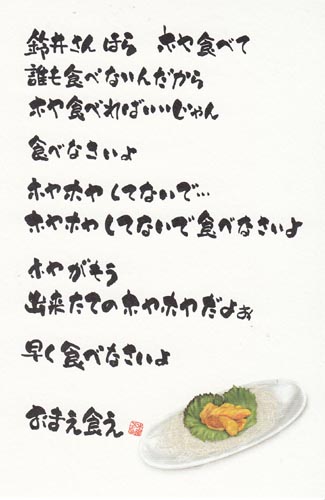 鈴井さん ほら ホヤ食べて
誰も食べないんだから
ホヤ食べればいいじゃん
食べなさいよ
ホヤホヤしてないで…
ホヤホヤしてないで食べなさいよ
ホヤがもう
出来たてのホヤホヤだよぉ
早く食べなさいよ
おまえ食え